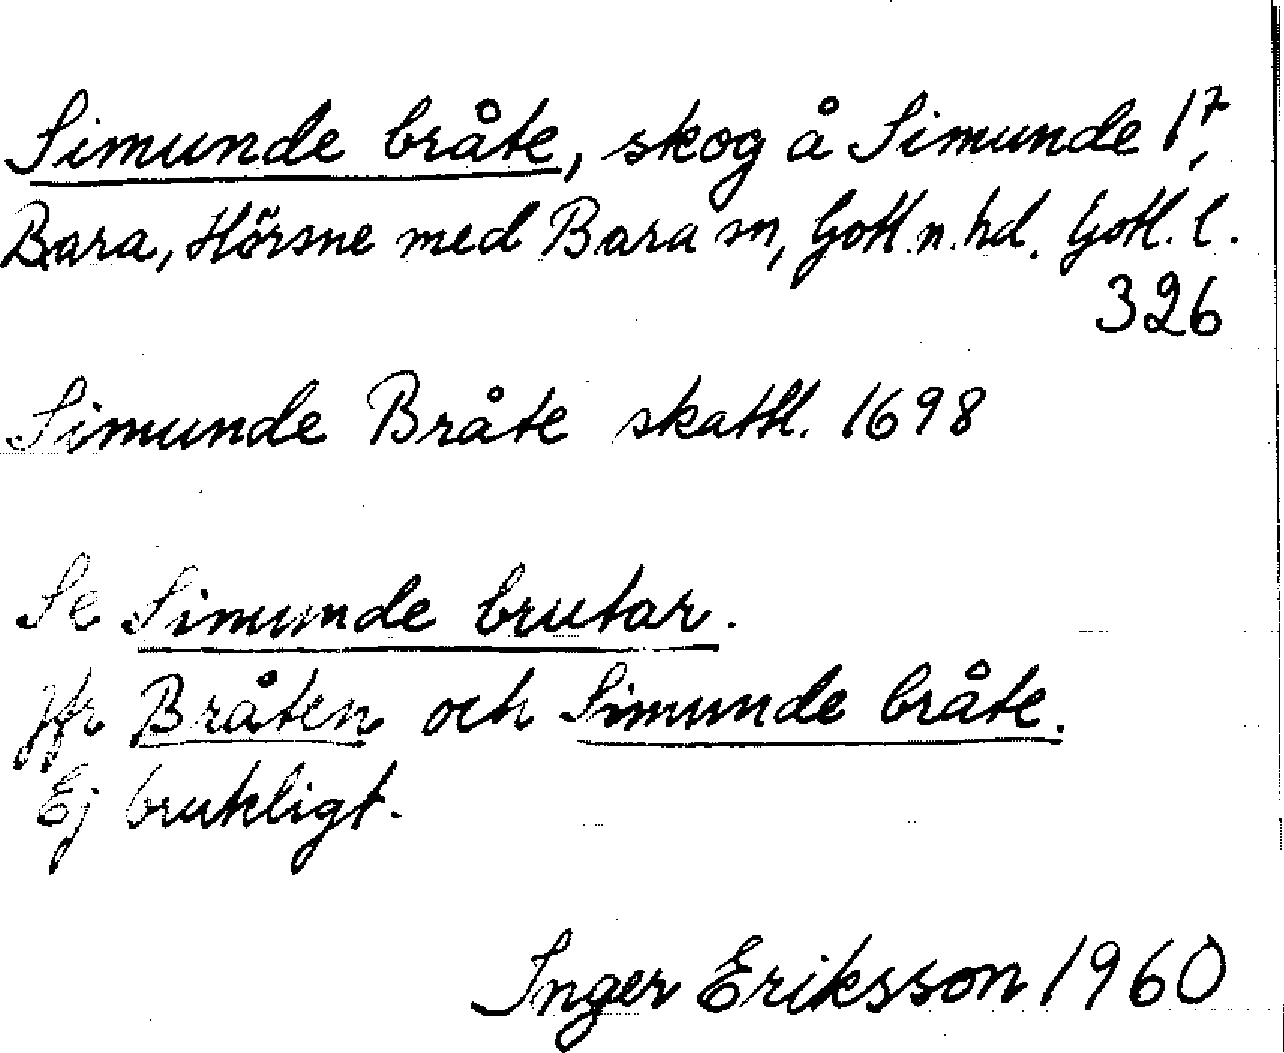 Simunde bråte, skog å Simunde 1⁷,
Bara, Hörsne med Bara sn, Gotl. n. hd. Gotl. l.
326
Simunde Bråte skattl. 1698
Se Simunde brutar.
Jfr Bråten och Simunde bråte.
Ej brukligt.
Inger Eriksson 1960